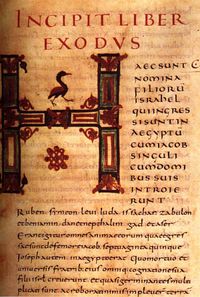 INCIPIT LIBER
EXODUS
H
AEC SUNT
NOMINA
FILIORU
ISRAHEL
QUIINGRES
SISUNTIN
AEGYPTU
CUMIACOB
SINGULI
CUMDOMI
BUS SUIS
INTROIE
RUNT
Ruben simeon leui iuda isachar zabulon
etbeniamin danetnepthalim gad etaser
Erantigituromnesanimaeeorum quaegres
saesuntdefemoreiacob septuagintaquinque
Iosephautem inaegyptoerat Quomortuo et
uniuersis fratribuseius omniqcognationesua
filiisrl creuerunt etquasigerminantesmulti
plicatisunt acroboratinimisimpleuer terra